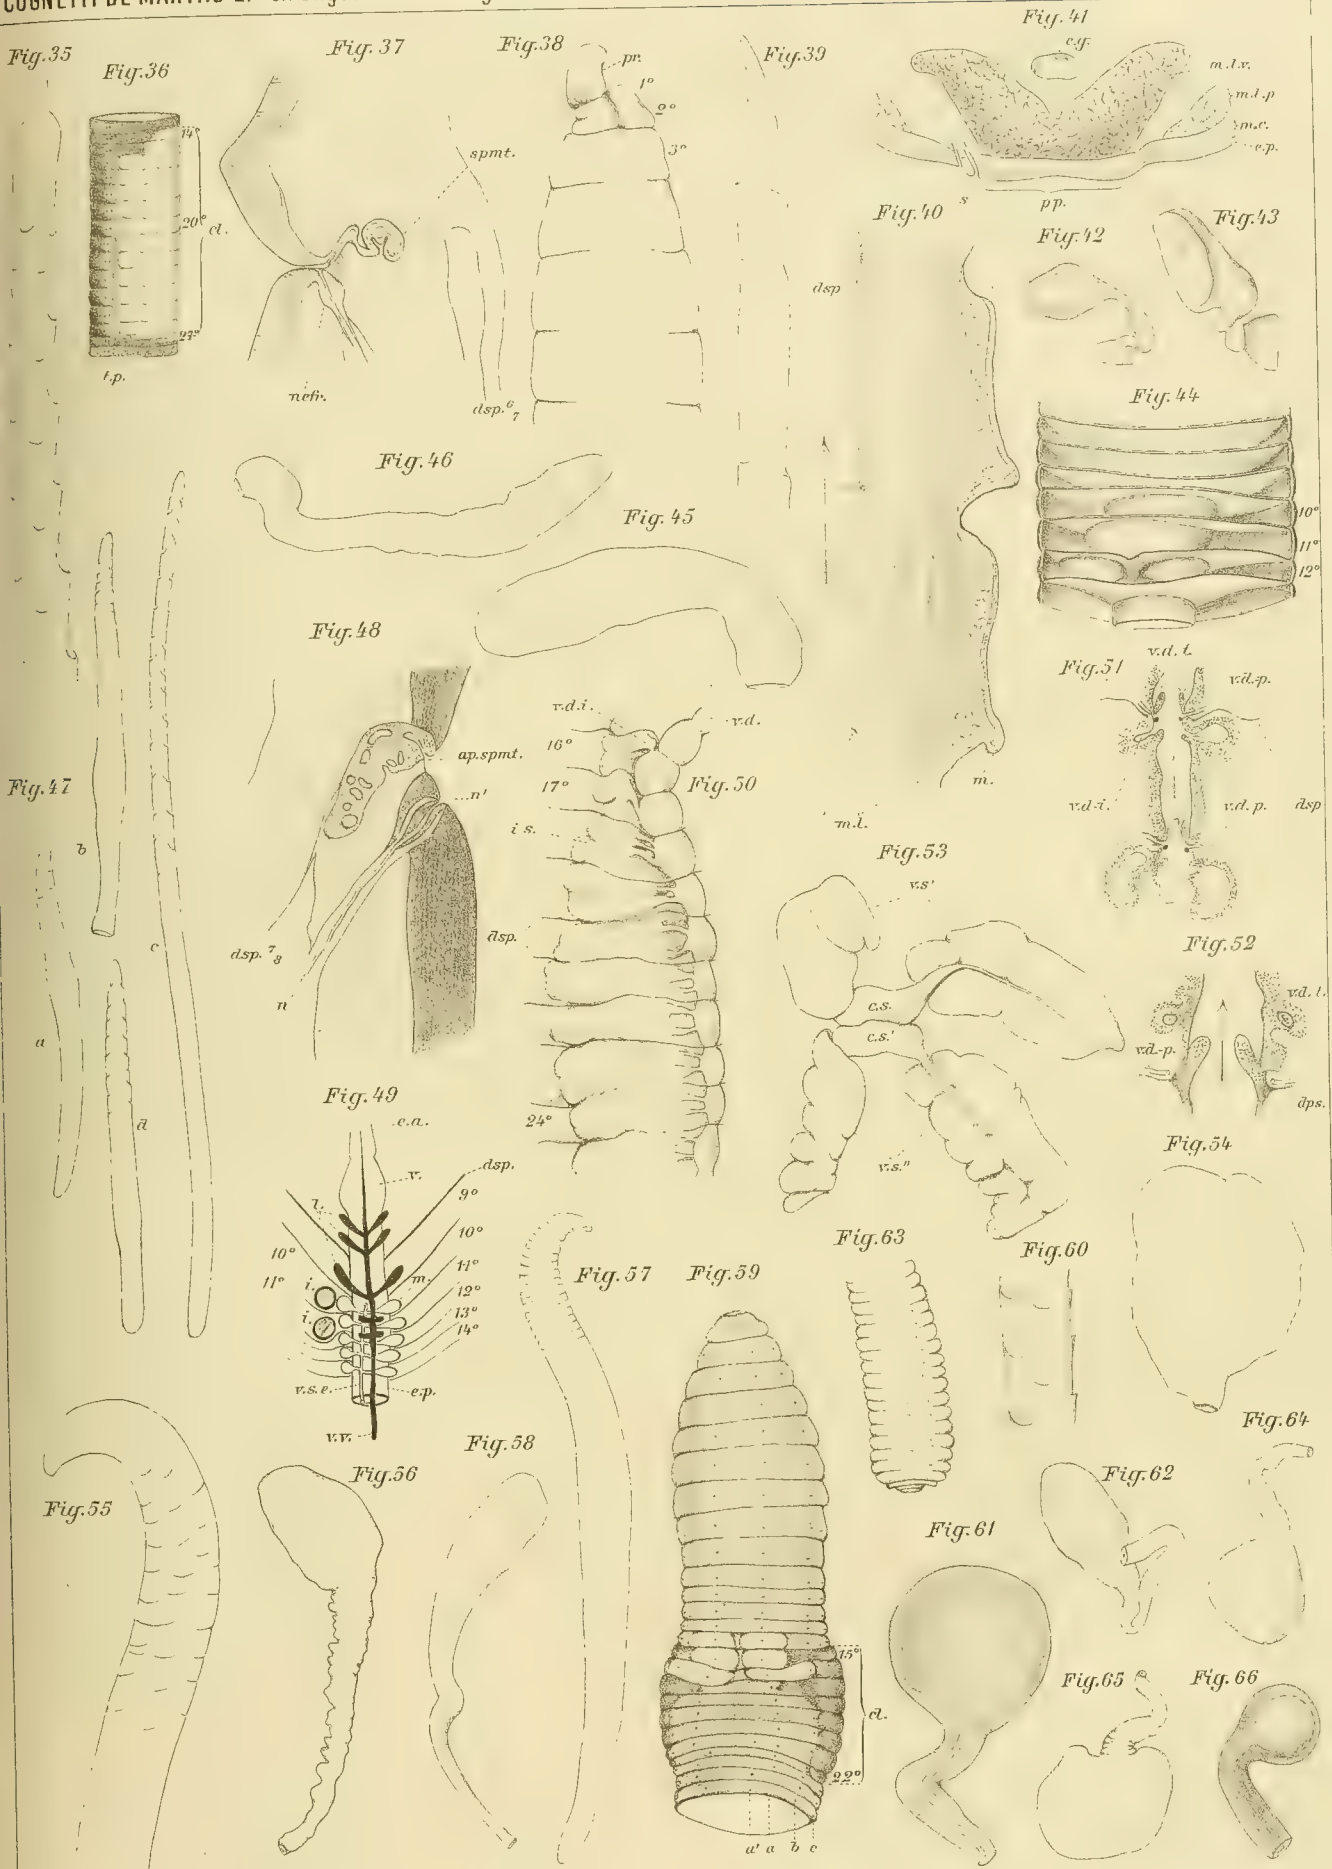 COGNETTI DE MARTIIS L.
Fig.35
Fig.36
14°
20°
cl.
27°
t.p.
Fig.37
spmt.
nefr.
dsp. 6/7
Fig.38
pr.
1°
2°
3°
Fig.39
dsp
Fig.41
c.g.
m.l.v.
m.l.p
m.c.
e.p.
s
pp.
Fig.40
m.
m.l.
Fig.42
Fig.43
Fig.44
10°
11°
12°
Fig.46
Fig.45
Fig.47
a
b
c
d
Fig.48
ap.spmt.
n'
dsp. 7/8
n
dsp.
v.d.i.
v.d.
16°
17°
i s.
24°
Fig.50
Fig.51
v.d. t.
v.d.-p.
v.d-i.
v.d. p.
dsp
Fig.53
v.s'
c.s.
c.s.'
v.s."
Fig.52
v.d. t.
v.d.-p.
dps.
Fig.49
e.a.
v.
dsp.
l.
9°
10°
10°
11°
11°
m.
12°
i.
13°
i.
14°
v.s.e.
e.p.
v.v.
Fig.54
Fig.57
Fig.59
15°
cl.
22°
a' a b c
Fig.63
Fig.60
Fig.64
Fig.55
Fig.56
Fig.58
Fig.61
Fig.62
Fig.65
Fig.66